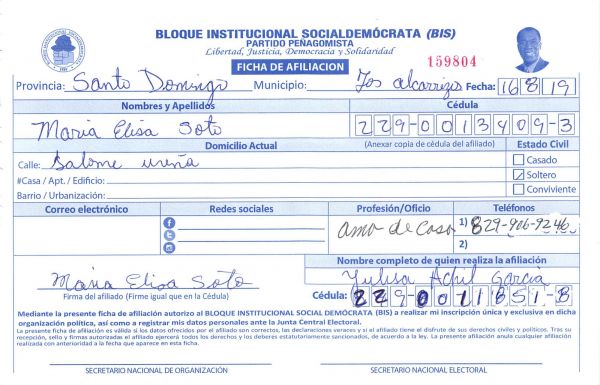 BLOQUE INSTITUCIONAL SOCIALDEMÓCRATA (BIS)
PARTIDO PEÑAGOMISTA
Libertad, Justicia, Democracia y Solidaridad
159804
FICHA DE AFILIACION
Provincia: Santo Domingo Municipio: Los alcarrizos Fecha: 16 8 19
Nombres y Apellidos Cédula
Maria Elisa Soto 229-0013409-3
Domicilio Actual (Anexar copia de cédula del afiliado) Estado Civil
Calle: Salome ureña Casado
#Casa / Apt. / Edificio: Soltero
Barrio / Urbanización: Conviviente
Correo electrónico Redes sociales Profesión/Oficio Teléfonos
ama de casa 1) 829-906-9246
2)
Nombre completo de quien realiza la afiliación
Maria Elisa Soto Yulisa Achil Garcia
Firma del afiliado (Firme igual que en la Cédula) Cédula: 229-0011851-8
Mediante la presente ficha de afiliación autorizo al BLOQUE INSTITUCIONAL SOCIAL DEMÓCRATA (BIS) a realizar mi inscripción única y exclusiva en dicha
organización política, así como a registrar mis datos personales ante la Junta Central Electoral.
La presente afiliación es válida si los datos ofrecidos por el afiliado son correctos, las declaraciones veraces y si el afiliado tiene el disfrute de sus derechos civiles y políticos. Tras su
recepción, sello y firmas autorizadas el afiliado ejercerá todos los derechos y los deberes estatutariamente sancionados, de acuerdo a la ley. La presente afiliación anula cualquier afiliación
realizada con anterioridad a la fecha que aparece en esta ficha.
SECRETARIO NACIONAL DE ORGANIZACIÓN SECRETARIO NACIONAL ELECTORAL